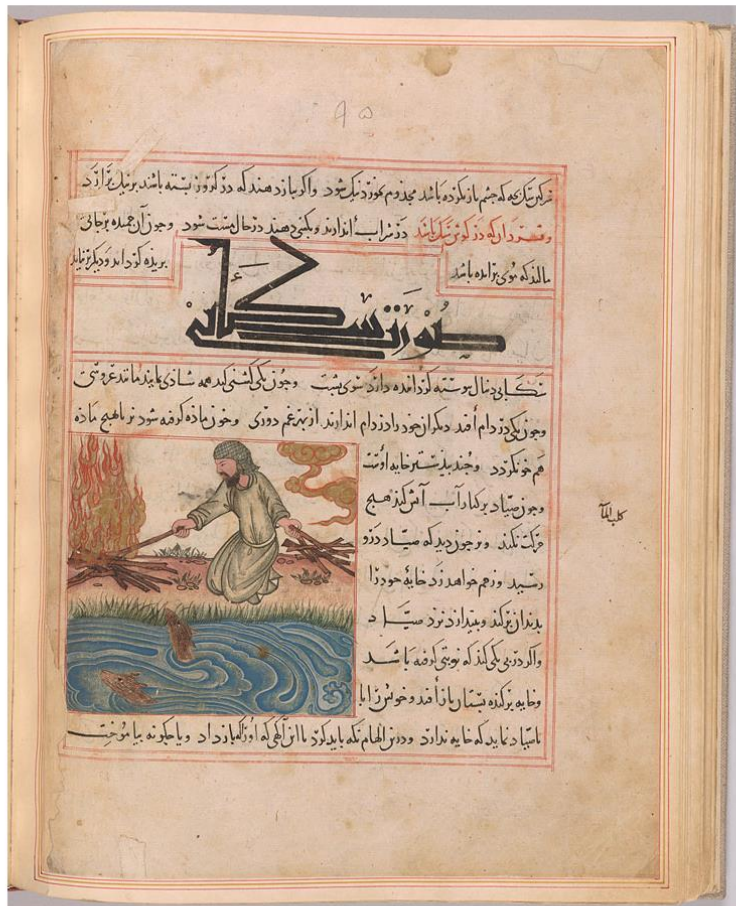 ۹۵
که چشم باز نکرده باشد مجذوم بخورد نیک شود واکر باز دهند که در کرو بسته باشند
در کوش سک باشد در شراب اندازند و بکسی دهند در حال مست شود وجون آن
مالند که موی برامده باشد بریده کردانذ ودیکر برنیاید
صورت سک آبی
سک آبی دنبال بوسته دارذ سوی بشت وجون یکی کشنی کند همه شاذی نمایند مانند عروسی
وجون یکی در دام افتد دیکران خود را در دام اندازند از بهر غم دوری وجون ماذه کرفته شود نر با هیج ماذه
هم خو نکردد وجند بیدستر خایه اوست
وجون صیاد بر کنار آب آتش کند هیج
حرکت نکند ونر جون دید که صیاد درو
رسید وزخم خواهد زد خایهٔ خود را
بدندان برکند وبیندازد نزد صیاد
واکر در بی یکی کند که نوبتی کرفته باشد
وخایه برکنده بستان باز افتد وخوش را با
تا صیاد نماید که خایه ندارد ودرین الهام نکه باید کرد تا این آکهی که اورا که باز داد ویا جکونه بیاموخت
کلب الماء